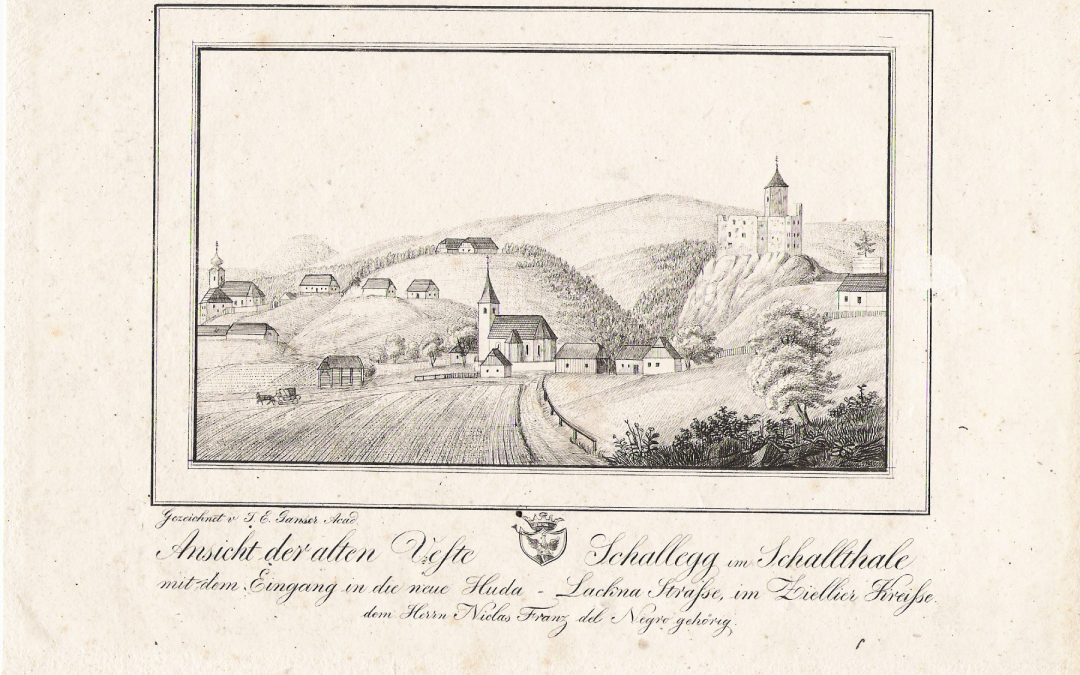 Gezeichnet v J. E. Ganser Acad
Ansicht der alten Veste Schallegg im Schallthale
mit dem Eingang in die neue Huda - Lackna Straſse, im Ziellier Kreiſse.
dem Herrn Niclas Franz del Negro gehörig.